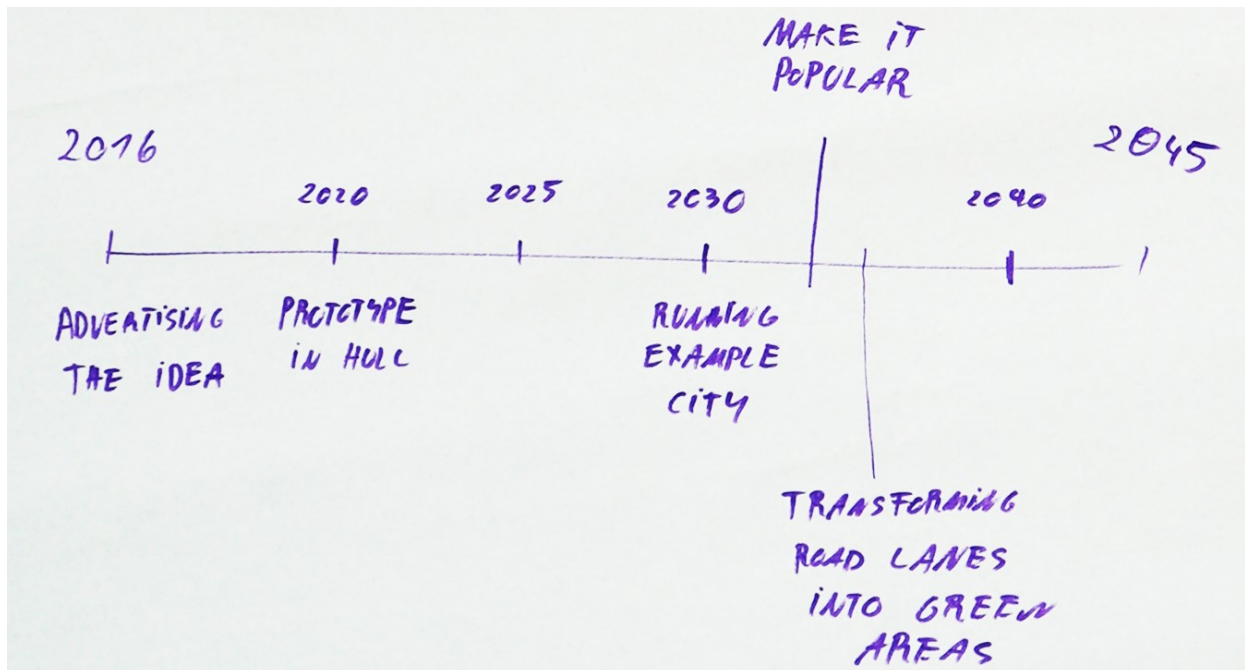 MAKE iT
POPULAR
2016
2045
2020
2025
2030
2040
ADVERTiSiNG
THE iDEA
PROTOTYPE
iN HULL
RUNNiNG
EXAMPLE
CiTY
TRANSFORMiNG
ROAD LANES
iNTO GREEN
AREAS